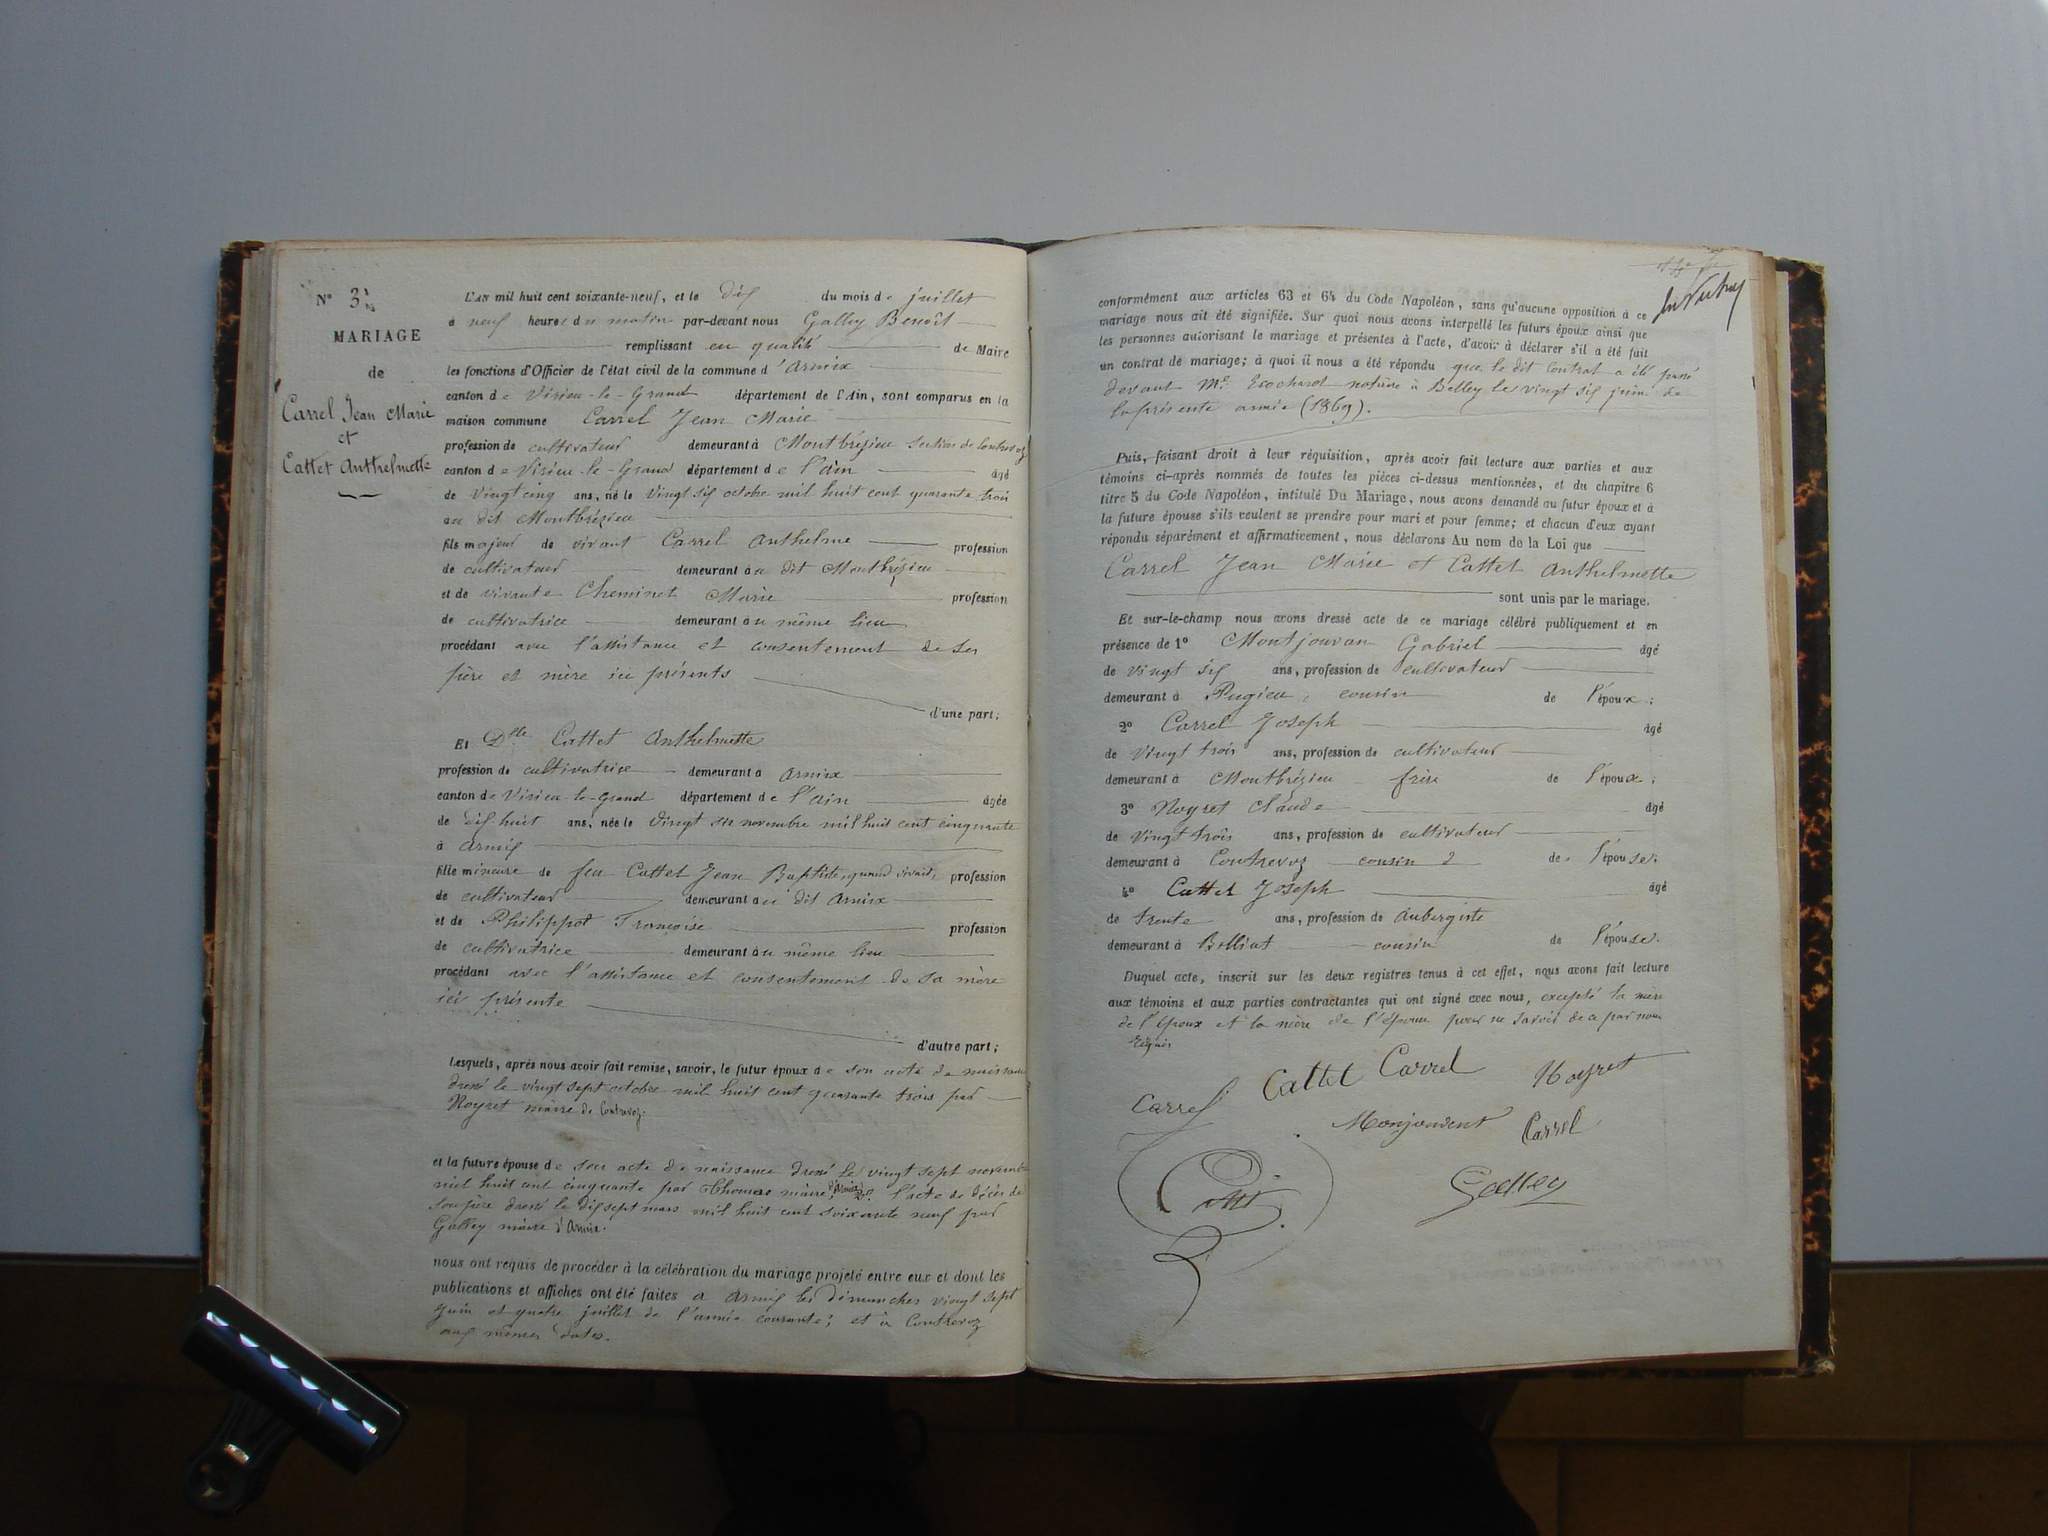 N° 3
MARIAGE
de
Carrel Jean Marie
et
Cattet Anthelmette
L'AN mil huit cent soixante-neuf, et le dix du mois de juillet
à neuf heures du matin par-devant nous Galley Benoît
remplissant en qualité de Maire
les fonctions d'Officier de l'état civil de la commune d'Arnix
canton de Virieu-le-Grand département de l'Ain, sont comparus en la
maison commune Carrel Jean Marie
profession de cultivateur demeurant à Montbrézieu section de Contrevoz
canton de Virieu-le-Grand département de l'ain âgé
de vingt cinq ans, né le vingt six octobre mil huit cent quarante trois
au dit Montbrézieu
fils majeur de vivant Carrel Anthelme profession
de cultivateur demeurant au dit Montbrézieu
et de vivante Cheminet Marie profession
de cultivatrice demeurant au même lieu
procédant avec l'assistance et consentement de ses
père et mère ici présents
d'une part;
Et Dlle Cattet Anthelmette
profession de cultivatrice demeurant à Arnix
canton de Virieu-le-Grand département de l'ain âgée
de dix-huit ans, née le vingt six novembre mil huit cent cinquante
à Arnix
fille mineure de feu Cattet Jean Baptiste, quand vivait, profession
de cultivateur demeurant au dit Arnix
et de Philippot Françoise profession
de cultivatrice demeurant au même lieu
procédant avec l'assistance et consentement de sa mère
ici présente
d'autre part;
Lesquels, après nous avoir fait remise, savoir, le futur époux de son acte de naissance
dressé le vingt sept octobre mil huit cent quarante trois par
Noyret maire de Contrevoz.
et la future épouse de son acte de naissance dressé le vingt sept novembre
mil huit cent cinquante par Thomas maire d'Arnix, l'acte de décès de
son père dressé le dix sept mars mil huit cent soixante neuf par
Galley maire d'Arnix.
nous ont requis de procéder à la célébration du mariage projeté entre eux et dont les
publications et affiches ont été faites à Arnix les dimanches vingt sept
juin et quatre juillet de l'année courante; et à Contrevoz
aux mêmes dates.
conformément aux articles 63 et 64 du Code Napoléon, sans qu'aucune opposition à ce
mariage nous ait été signifiée. Sur quoi nous avons interpellé les futurs époux ainsi que
les personnes autorisant le mariage et présentes à l'acte, d'avoir à déclarer s'il a été fait
un contrat de mariage; à quoi il nous a été répondu que le dit Contrat a été passé
devant Me notaire à Belley le vingt six juin de
la présente année (1869).
Puis, faisant droit à leur réquisition, après avoir fait lecture aux parties et aux
témoins ci-après nommés de toutes les pièces ci-dessus mentionnées, et du chapitre 6
titre 5 du Code Napoléon, intitulé Du Mariage, nous avons demandé au futur époux et à
la future épouse s'ils veulent se prendre pour mari et pour femme; et chacun d'eux ayant
répondu séparément et affirmativement, nous déclarons Au nom de la Loi que
Carrel Jean Marie et Cattet Anthelmette
sont unis par le mariage.
Et sur-le-champ nous avons dressé acte de ce mariage célébré publiquement et en
présence de 1° Montjouvan Gabriel âgé
de vingt six ans, profession de cultivateur
demeurant à Pugieu, cousin de l'époux;
2° Carrel Joseph âgé
de vingt trois ans, profession de cultivateur
demeurant à Montbrézieu frère de l'époux;
3° Noyret Claude âgé
de vingt trois ans, profession de cultivateur
demeurant à Contrevoz cousin de l'épouse.
4° Cattet Joseph âgé
de trente ans, profession de Aubergiste
demeurant à cousin de l'épouse.
Duquel acte, inscrit sur les deux registres tenus à cet effet, nous avons fait lecture
aux témoins et aux parties contractantes qui ont signé avec nous, excepté la mère
de l'époux et la mère de l'épouse pour ne savoir de ce par nous
requis
Cattet Carrel Noyret
Carrel
Monjouvent Carrel
Galley